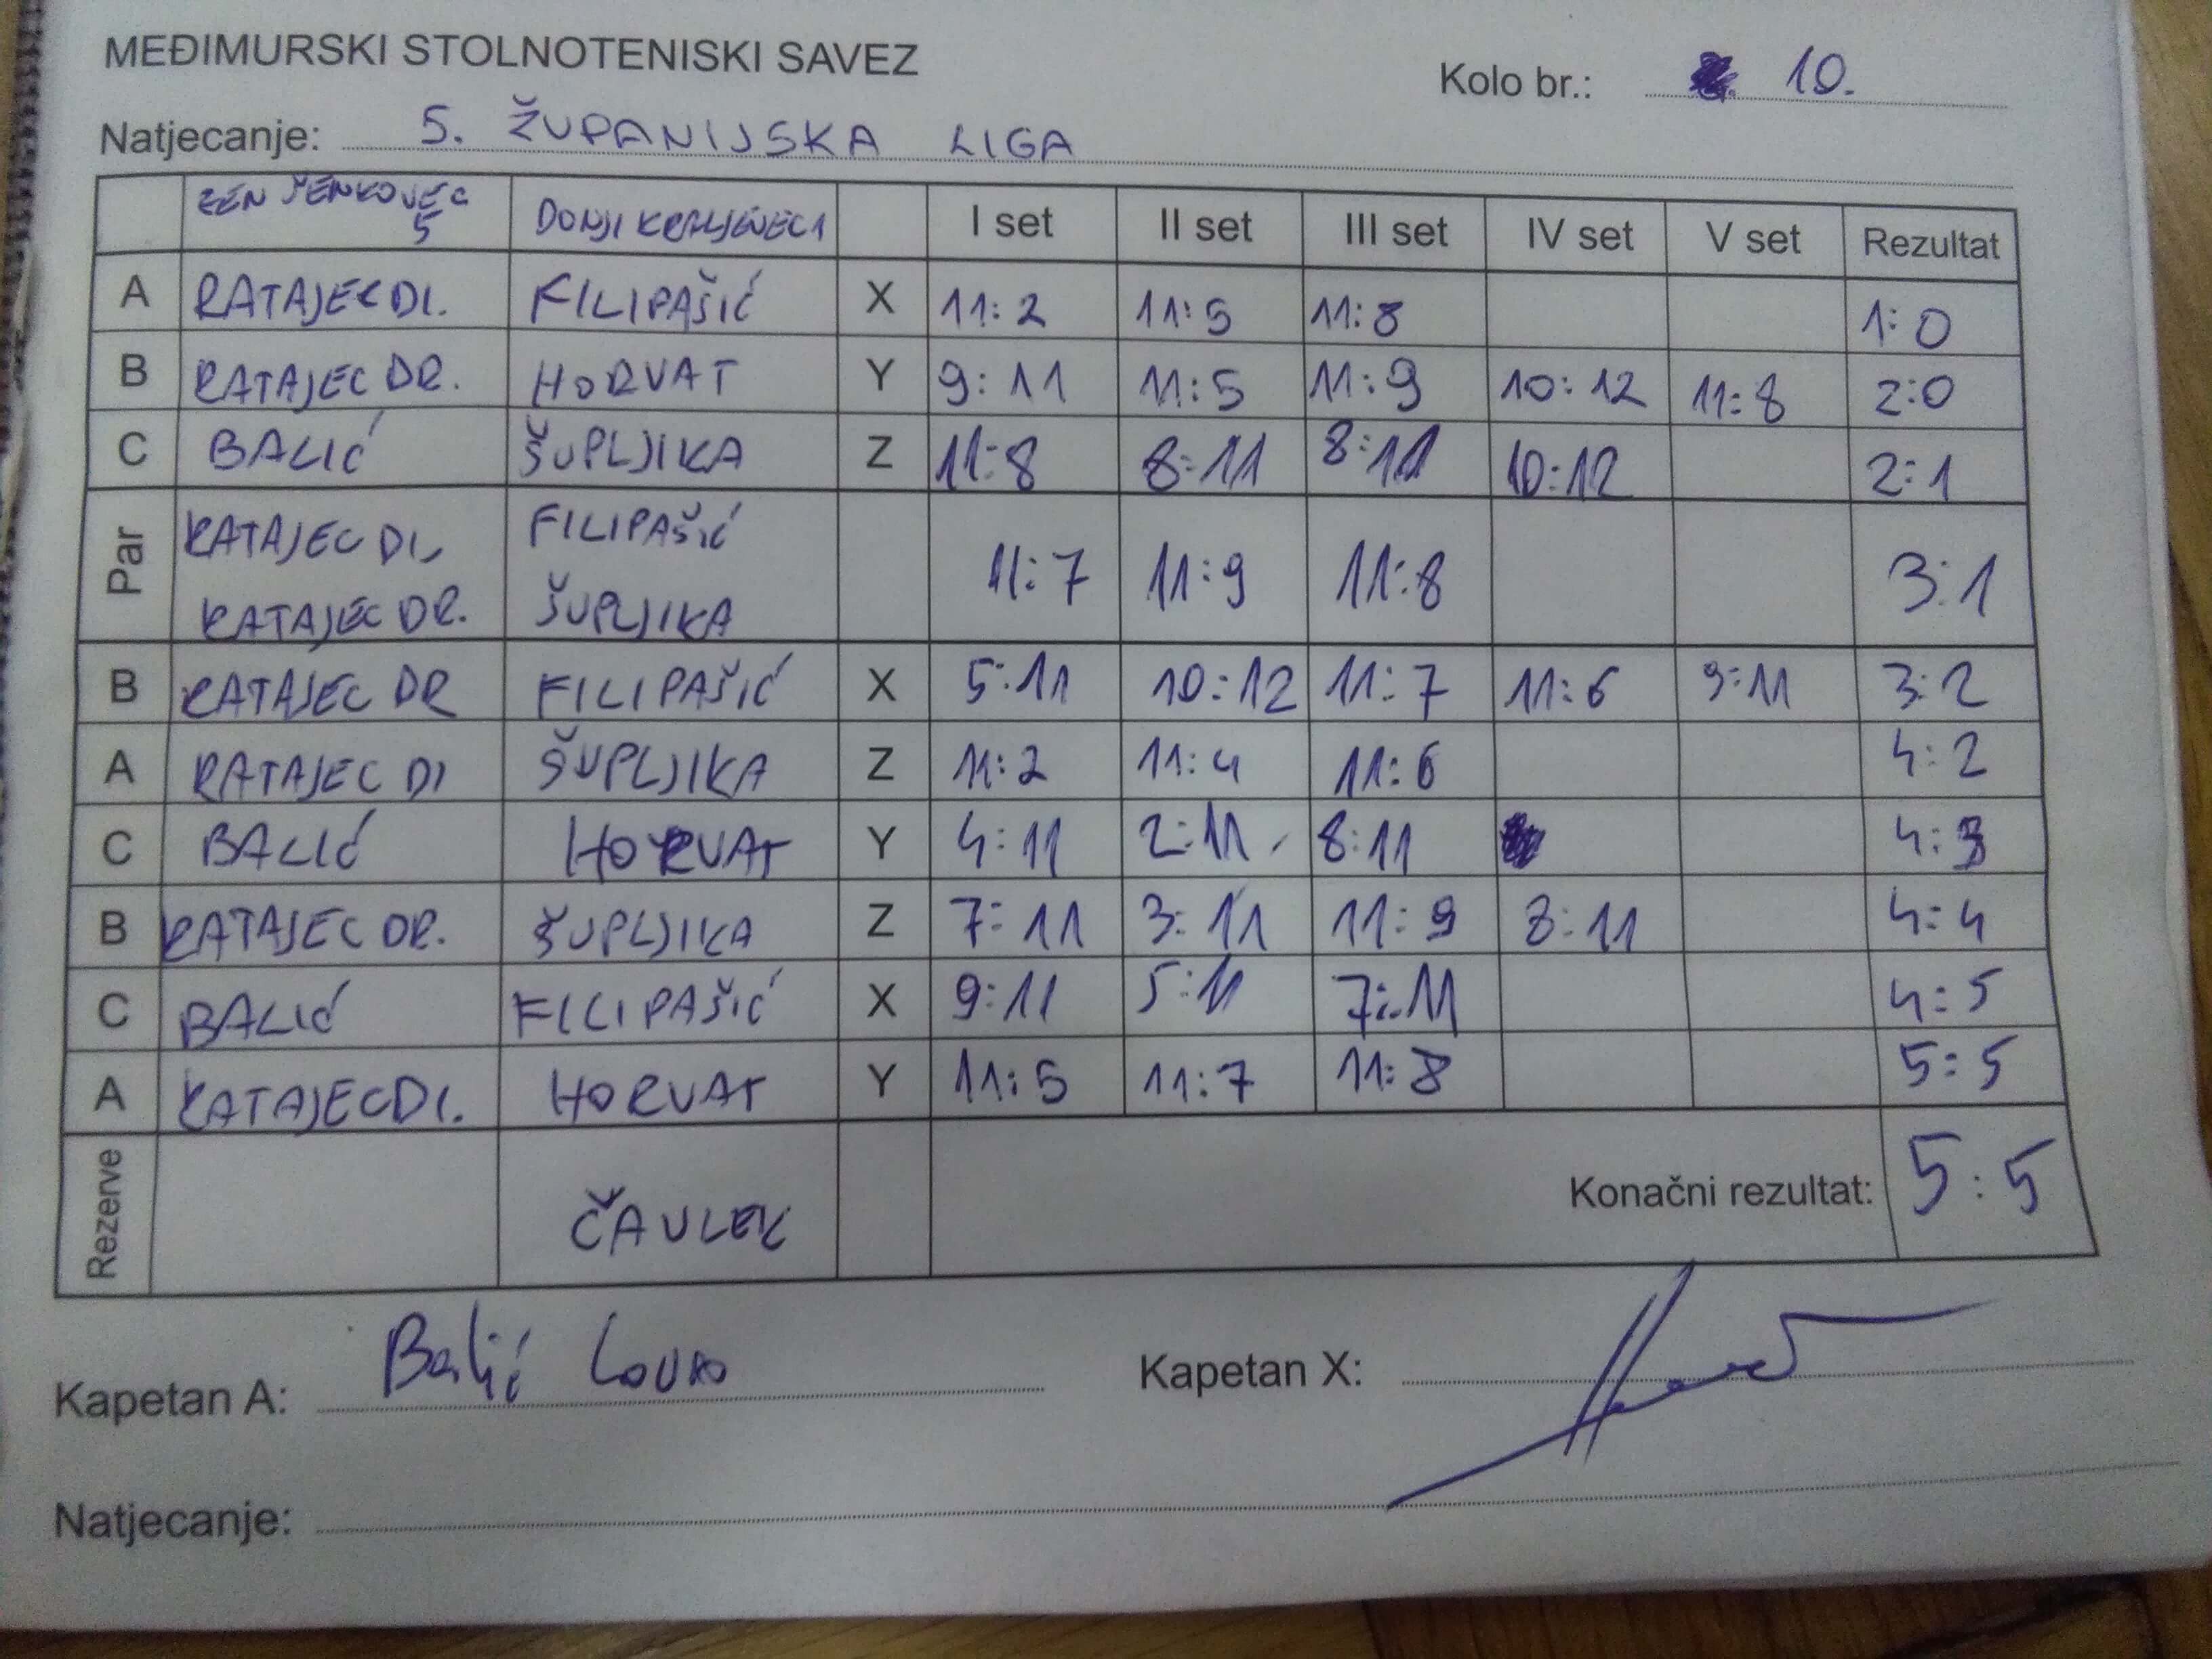 MEĐIMURSKI STOLNOTENISKI SAVEZ
Kolo br.: 10.
Natjecanje: 5. ŽUPANIJSKA LIGA
ZEN ŠENKOVEC 5 DONJI KRALJEVEC 1 I set II set III set IV set V set Rezultat
A RATAJEC DI. FILIPAŠIĆ X 11:2 11:5 11:8 1:0
B RATAJEC DR. HORVAT Y 9:11 11:5 11:9 10:12 11:8 2:0
C BALIĆ ŠUPLJIKA Z 11:8 8:11 8:11 10:12 2:1
Par RATAJEC DI, FILIPAŠIĆ 11:7 11:9 11:8 3:1
RATAJEC DR. ŠUPLJIKA
B RATAJEC DR FILIPAŠIĆ X 5:11 10:12 11:7 11:6 9:11 3:2
A RATAJEC DI ŠUPLJIKA Z 11:2 11:4 11:6 4:2
C BALIĆ HORVAT Y 4:11 2:11 8:11 4:3
B RATAJEC DR. ŠUPLJIKA Z 7:11 3:11 11:9 8:11 4:4
C BALIĆ FILIPAŠIĆ X 9:11 5:11 7:11 4:5
A RATAJEC DI. HORVAT Y 11:5 11:7 11:8 5:5
Rezerve ČAVLEK Konačni rezultat: 5:5
Kapetan A: Balić Lovro Kapetan X:
Natjecanje: